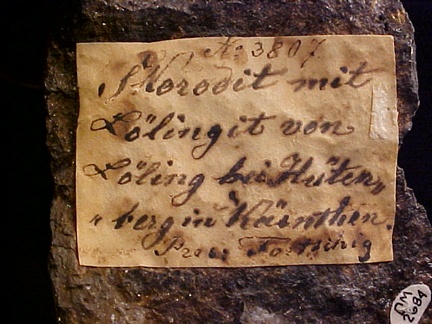 No 3807
Skorodit mit
Lölingit von
Löling bei Hüten„
„berg in Kärnthen.
AM
2684